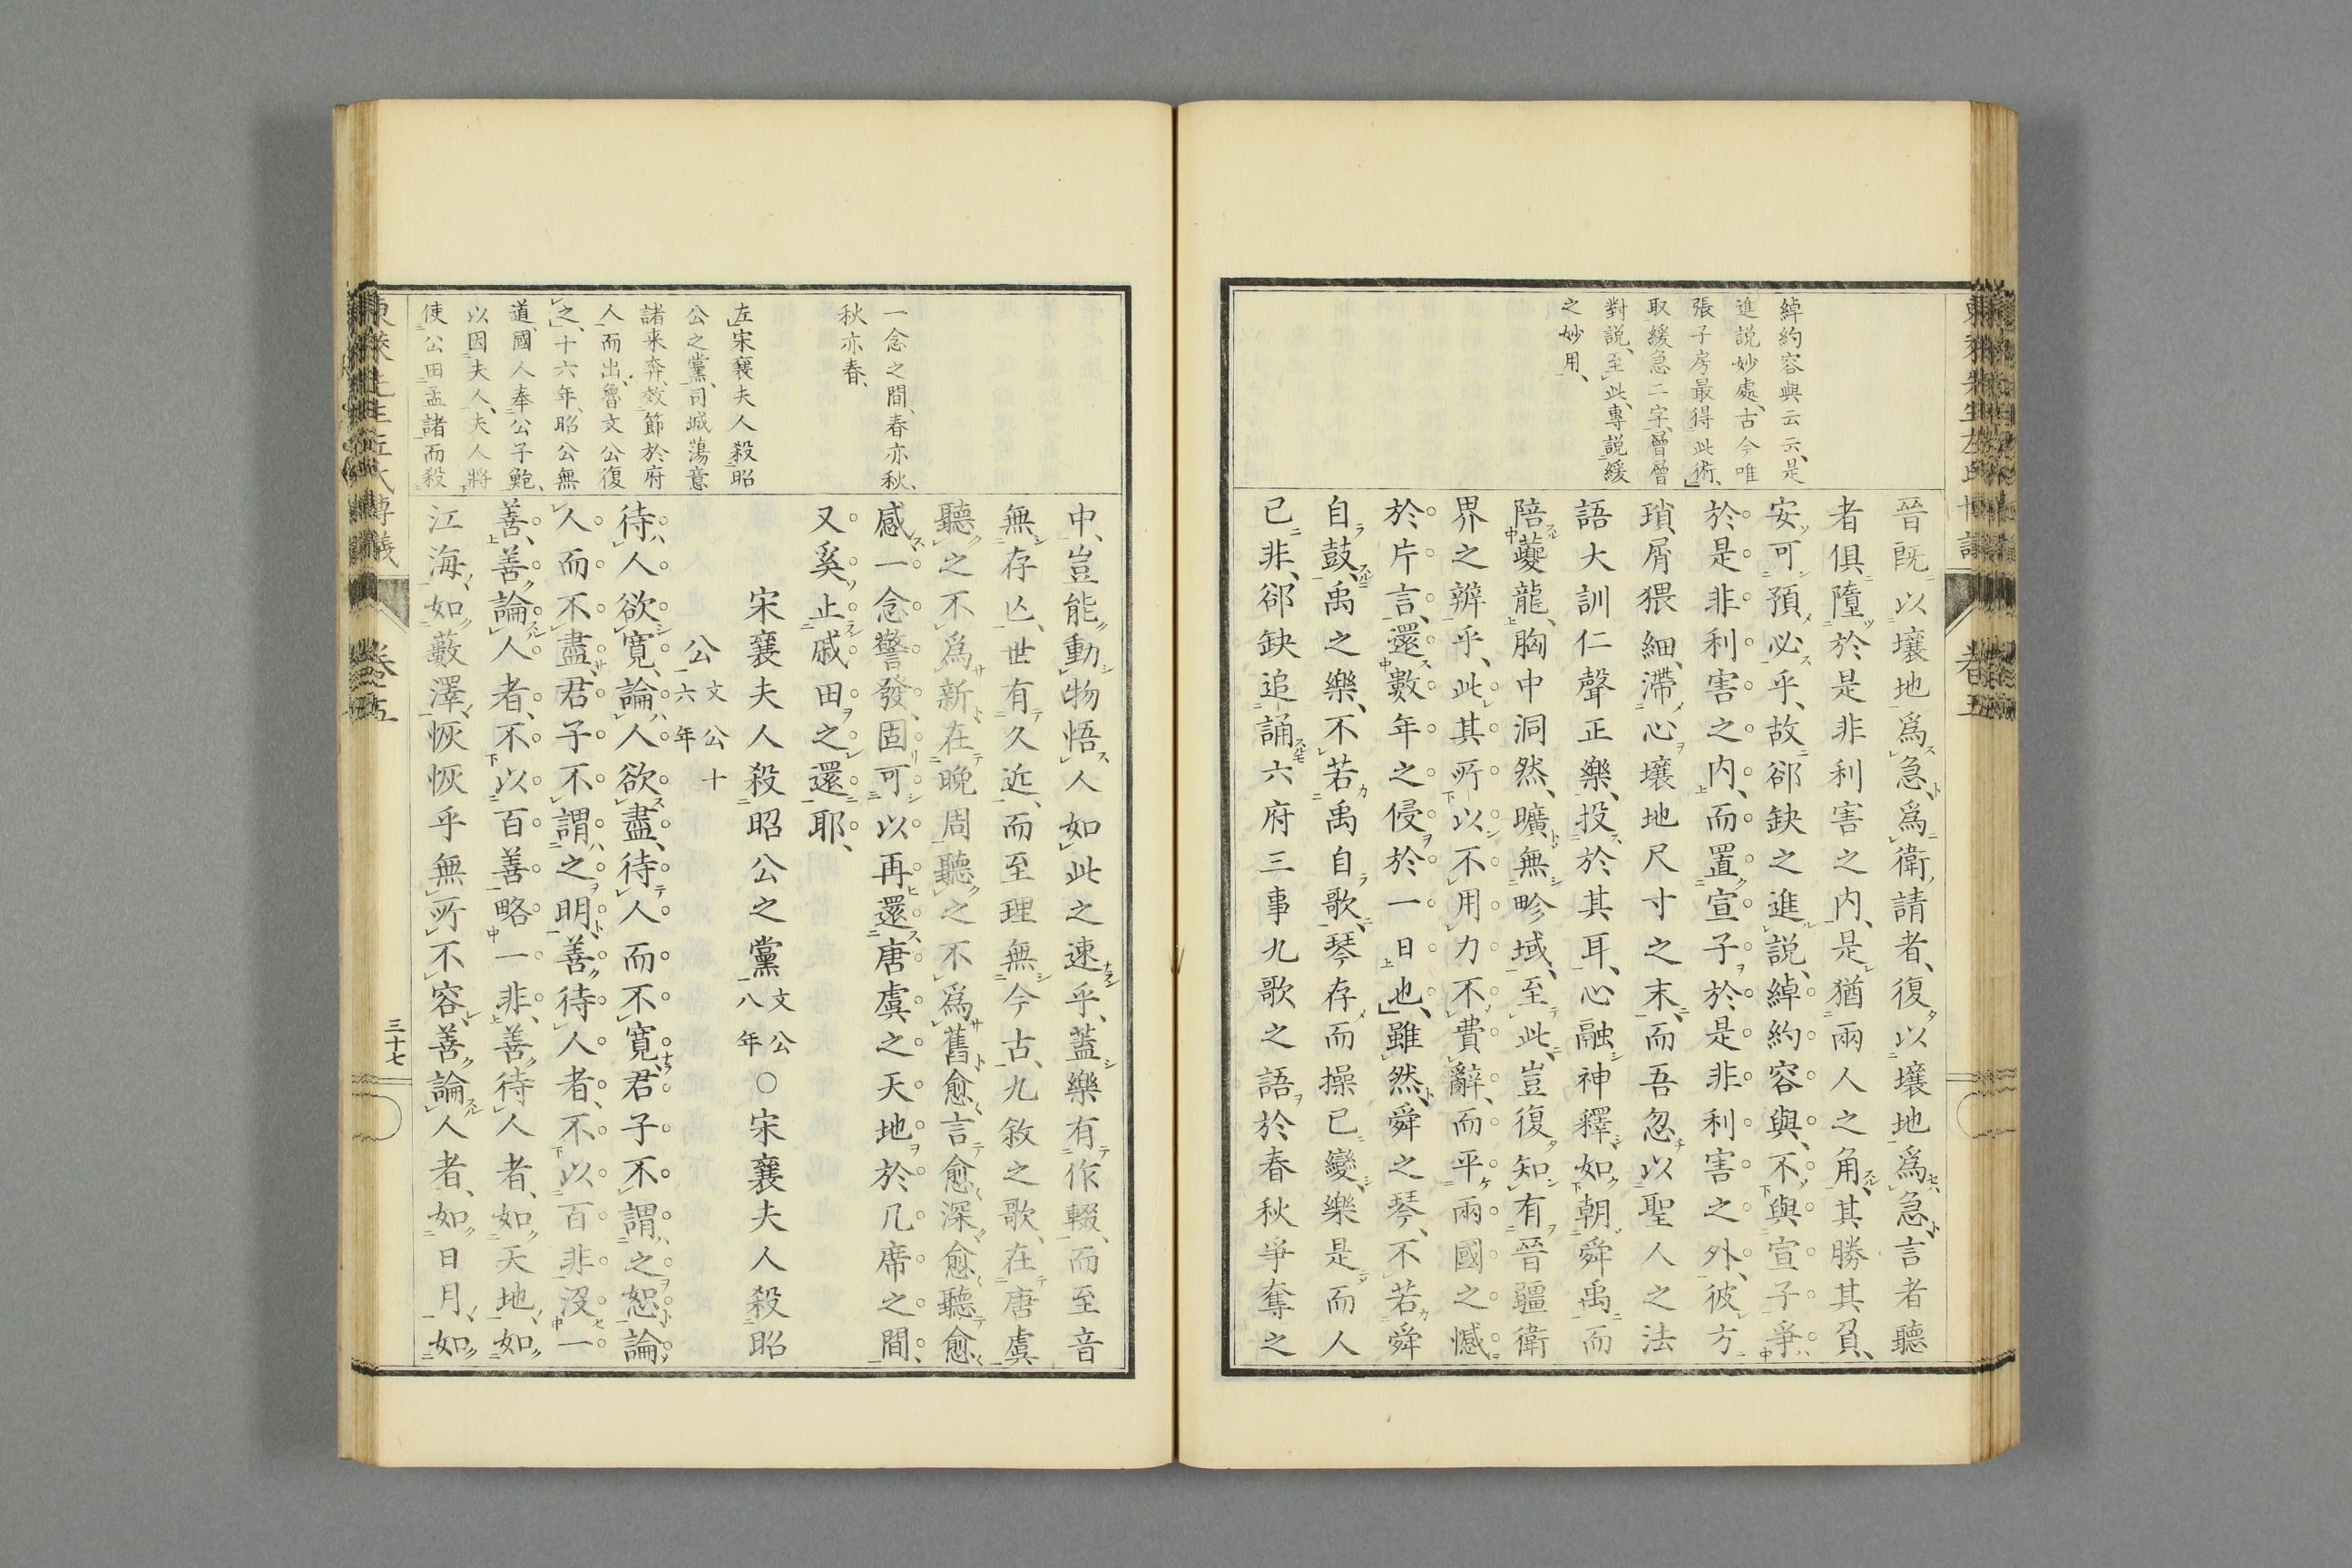 綽約容與云云、是
進説妙處、古今唯
張子房最得此術、
取緩急二字、層層
對説、至此、專説緩
之妙用、
晉既以壤地爲急、爲衛請者、復以壤地爲急、言者聽
者俱墮於是非利害之内、是猶兩人之角、其勝其負、
安可預必乎、故郤缺之進説、綽約容與、不與宣子爭
於是非利害之内、而置宣子於是非利害之外、彼方
瑣屑猥細、滯心壤地尺寸之末、而吾忽以聖人之法
語大訓仁聲正樂、投於其耳、心融神釋、如朝舜禹而
陪夔龍、胸中洞然、曠無畛域、至此、豈復知有晉疆衛
界之辨乎、此其所以不用力不費辭、而平兩國之憾
於片言、還數年之侵於一日也、雖然、舜之琴、不若舜
自鼓、禹之樂、不若禹自歌、琴存而操已變、樂是而人
已非、郤缺追誦六府三事九歌之語於春秋爭奪之
卷五
一念之間、春亦秋、
秋亦春、
左宋襄夫人殺昭
公之黨、司城蕩意
諸來奔、效節於府
人而出、魯文公復
之、十六年、昭公無
道、國人奉公子鮑、
以因夫人、夫人將
使公田孟諸而殺
中、豈能動物悟人如此之速乎、蓋樂有作輟、而至音
無存亾、世有久近、而至理無今古、九敘之歌、在唐虞
聽之不爲新、在晩周聽之不爲舊、愈言愈深、愈聽愈
感、一念警發、固可以再還唐虞之天地於几席之間、
又奚止戚田之還耶、
宋襄夫人殺昭公之黨文公八年○宋襄夫人殺昭
公文公十六年
待人欲寛、論人欲盡、待人而不寛、君子不謂之恕、論
人而不盡、君子不謂之明、善待人者、不以百非沒一
善、善論人者、不以百善略一非、善待人者、如天地、如
江海、如藪澤、恢恢乎無所不容、善論人者、如日月、如
東萊先生左氏博議
卷五
三十七